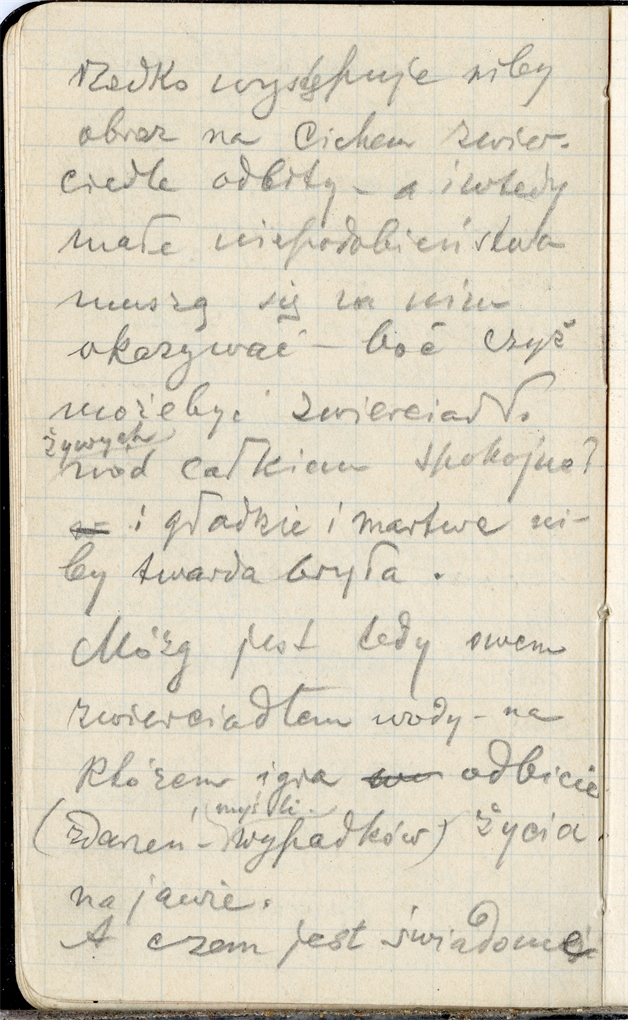 rzadko występuje niby
obraz na cichem zwier-
ciedle odbity - a i wtedy
małe niepodobieństwa
muszą się na nim
okazywać - boć czyż
może być zwierciadło
żywych
wód całkiem spokojne?
i gładkie i martwe ni-
by twarda bryła.
Mózg jest tedy owem
zwierciadłem wody - na
którem igra odbicie
myśli -
(zdarzeń - wypadków) życia
na jawie.
A czem jest świadomość